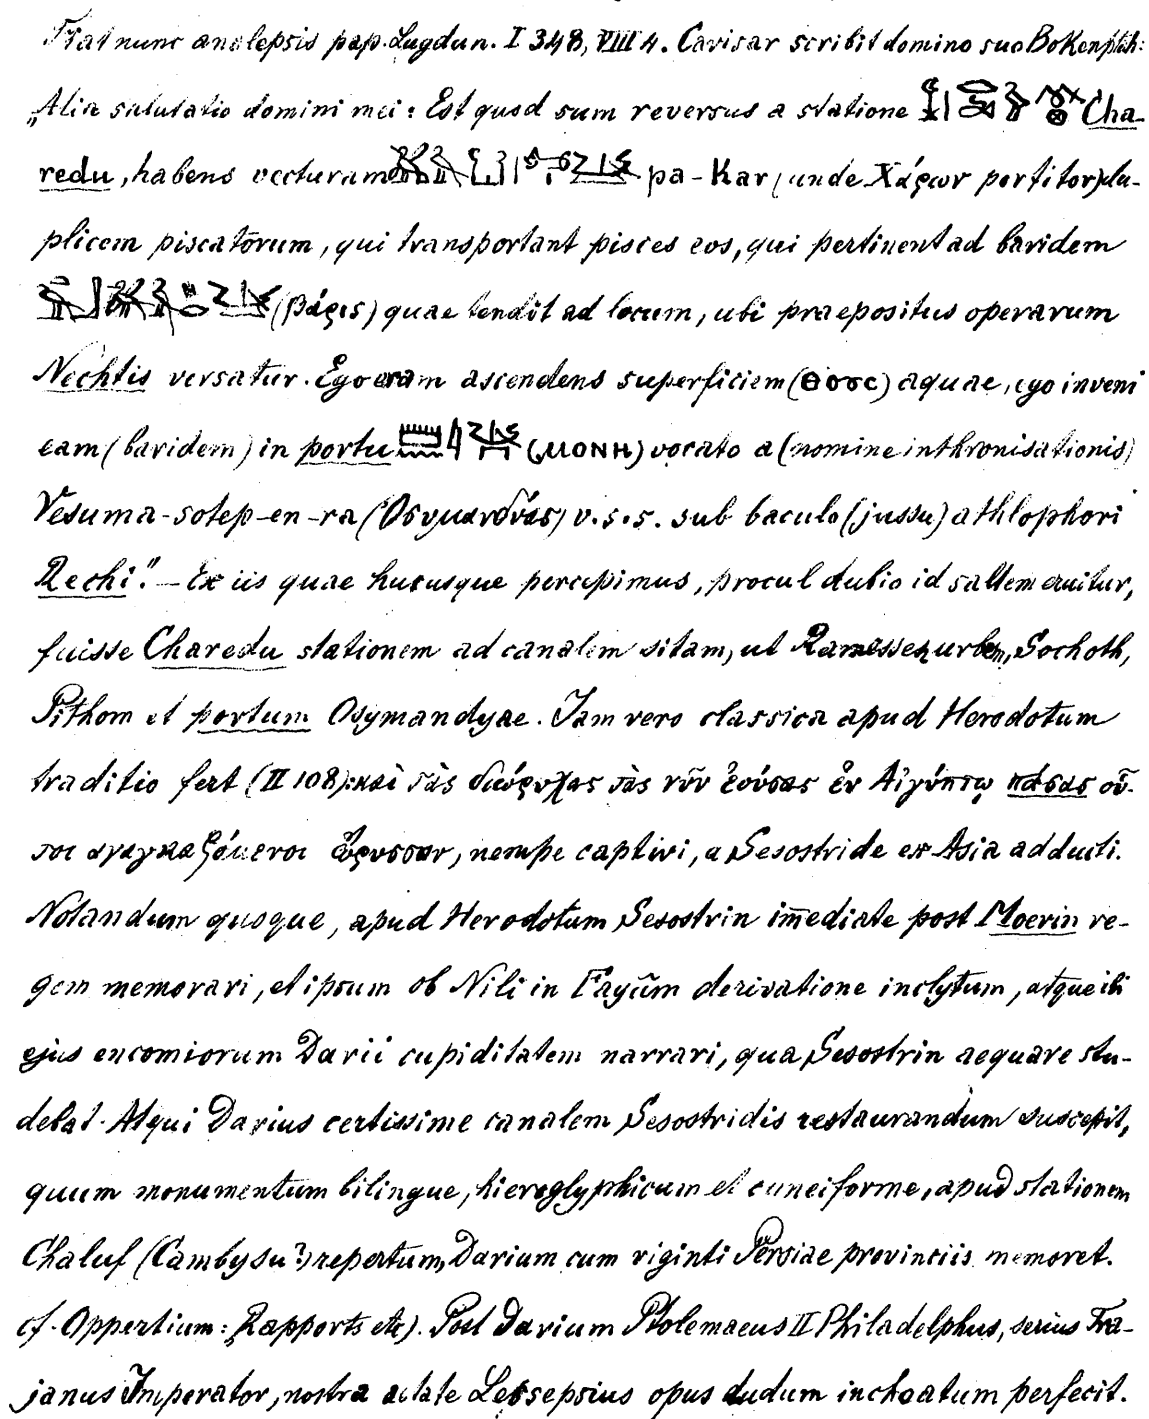 Fiat nunc analepsis pap. Lugdun. I 348, VIII 4. Cavisar scribit domino suo Bokenptah:
„Alia salutatio domini mei: Est quod sum reversus a statione Cha-
redu, habens vecturam pa-Kar (unde Χάρων portitor) du-
plicem piscatorum, qui transportant pisces eos, qui pertinent ad baridem
(βάρις) quae tendit ad locum, ubi praepositus operarum
Nechtis versatur. Ego eram ascendens superficiem (ϴⲟⲥⲥ) aquae, ego inveni
eam (baridem) in portu (ⲙⲟⲛⲏ) vocato a (nomine inthronisationis)
Vesuma-sotep-en-ra (Ὀσυμανδύας) v. s. s. sub baculo (jussu) athlophori
Rechi." — Ex iis quae hucusque percepimus, procul dubio id saltem eruitur,
fuisse Charedu stationem ad canalem sitam, ut Ramessen urbem, Sochoth,
Pithom et portum Osymandyae. Jam vero classica apud Herodotum
traditio fert (II 108): καὶ τὰς διώρυχας τὰς νῦν ἐούσας ἐν Αἰγύπτῳ πάσας οὗ-
τοι αναγκαζόμενοι ὤρυσσον, nempe captivi, a Sesostride ex Asia adducti.
Notandum quoque, apud Herodotum Sesostrin im̅ediate post Moerin re-
gem memorari, et ipsum ob Nili in Fayûm derivatione inclytum, atque ibi
ejus encomiorum Darii cupiditatem narrari, qua Sesostrin aequare stu-
debat. Atqui Darius certissime canalem Sesostridis restaurandum suscepit,
quum monumentum bilingue, hieroglyphicum et cuneiforme, apud stationem
Chaluf (Cambysu?) repertum, Darium cum viginti Persiae provinciis memoret.
cf. Oppertium: Rapports etc). Post Darium Ptolemaeus II Philadelphus, serius Tra-
janus Imperator, nostra aetate Lessepsius opus dudum inchoatum perfecit.